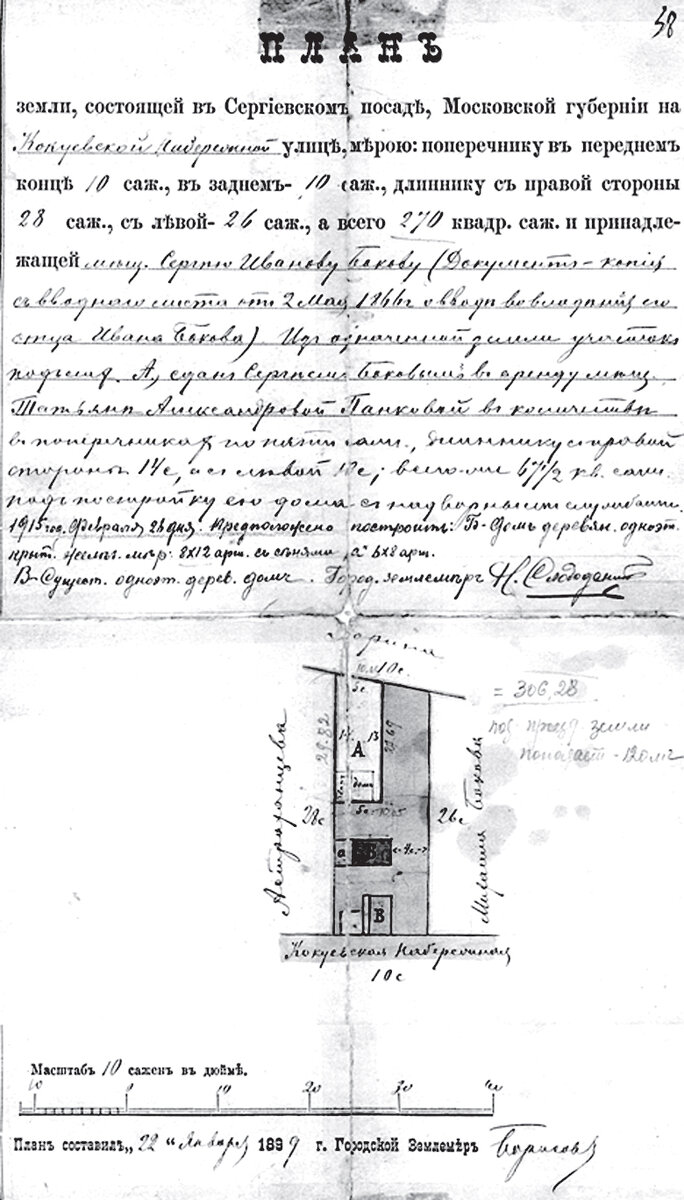 58
ПЛАНЪ
земли, состоящей въ Сергіевскомъ посадѣ, Московской губерніи на
Кокуевской Набережной улицѣ, мѣрою: поперечнику въ переднемъ
концѣ 10 саж., въ заднемъ- 10 саж., длиннику съ правой стороны
28 саж., съ лѣвой- 26 саж., а всего 270 квадр. саж. и принадле-
жащей мѣщ. Сергѣю Иванову Бокову (Документъ - копія
съ вводного листа отъ 2 Мая 1866 г о вводѣ во владѣніе его
отца Ивана Бокова) Изъ означенной земли участокъ
подъ лит. А, сданъ Сергѣемъ Боковымъ въ аренду мѣщ.
Татьянѣ Александровой Панковой въ количествѣ
въ поперечникахъ по пяти саж., длиннику съ правой
стороны 14 с, а съ лѣвой 13 с; всего 67 1/2 кв. саж.
подъ постройку его дома съ надворными службами.
1915 год. Февраля 28 дня. Предположено построить: Б- Домъ деревян. одноэт.
крыт. желѣз. мѣр. 8х12 арш. съ сѣнями „а" 5х8 арш.
В- Сущест. одноэт. дерев. домъ. Город. землемѣръ
10 с.
= 306,28
под проезд земли
попадает - 120 м2
5с
14
13
29.82
А
домъ
5с
10.65
28с
26с
а
Б
4с
В
Милаша Бокова
Кокуевская Набережная
10 с
Масштабъ 10 саженъ въ дюймѣ.
10 0 10 20 30 40
Планъ составилъ „22" Января 1899 г. Городской Землемѣръ Борисовъ